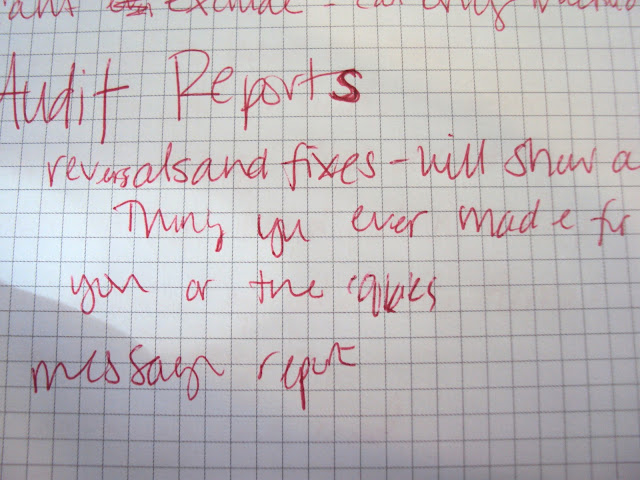 exclude - can only
Audit Reports
reversals and fixes - will show a
Thing you ever made fr
you or the
message report